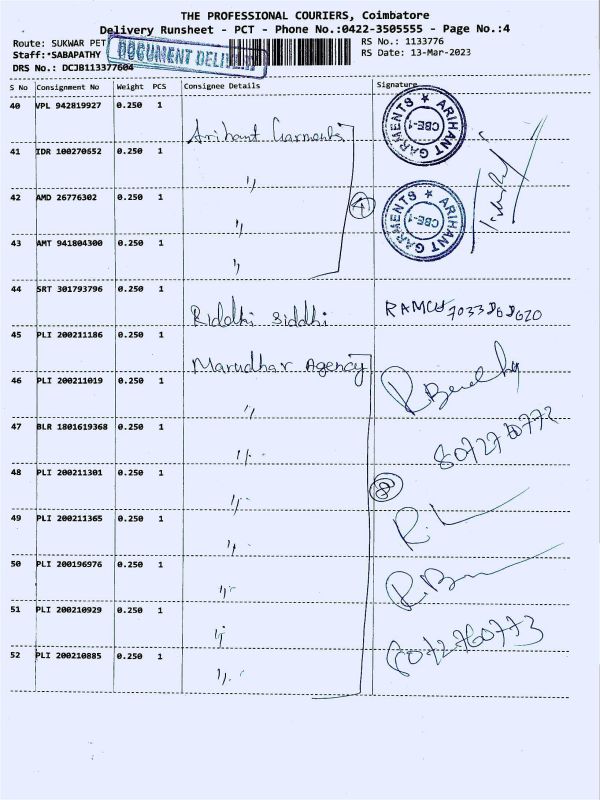 THE PROFESSIONAL COURIERS, Coimbatore
Delivery Runsheet - PCT - Phone No.:0422-3505555 - Page No.:4
Route: SUKWAR PET
RS No.: 1133776
Staff: SABAPATHY
RS Date: 13-Mar-2023
DRS No.: DCJB113377604
DOCUMENT DELIVERY
S No Consignment No Weight PCS Consignee Details Signature
40 VPL 942819927 0.250 1 Arihant Garments
ARIHANT GARMENTS ★ CBE-1
41 IDR 100270652 0.250 1 "
42 AMD 26776302 0.250 1 "
4
ARIHANT GARMENTS ★ CBE-1
43 AMT 941804300 0.250 1 "
44 SRT 301793796 0.250 1 Riddhi Siddhi RAMU
45 PLI 200211186 0.250 1 Marudhar Agency
46 PLI 200211019 0.250 1 "
47 BLR 1801619368 0.250 1 "
48 PLI 200211301 0.250 1 "
8
49 PLI 200211365 0.250 1 "
50 PLI 200196976 0.250 1 "
51 PLI 200210929 0.250 1 "
8072760773
52 PLI 200210885 0.250 1 "